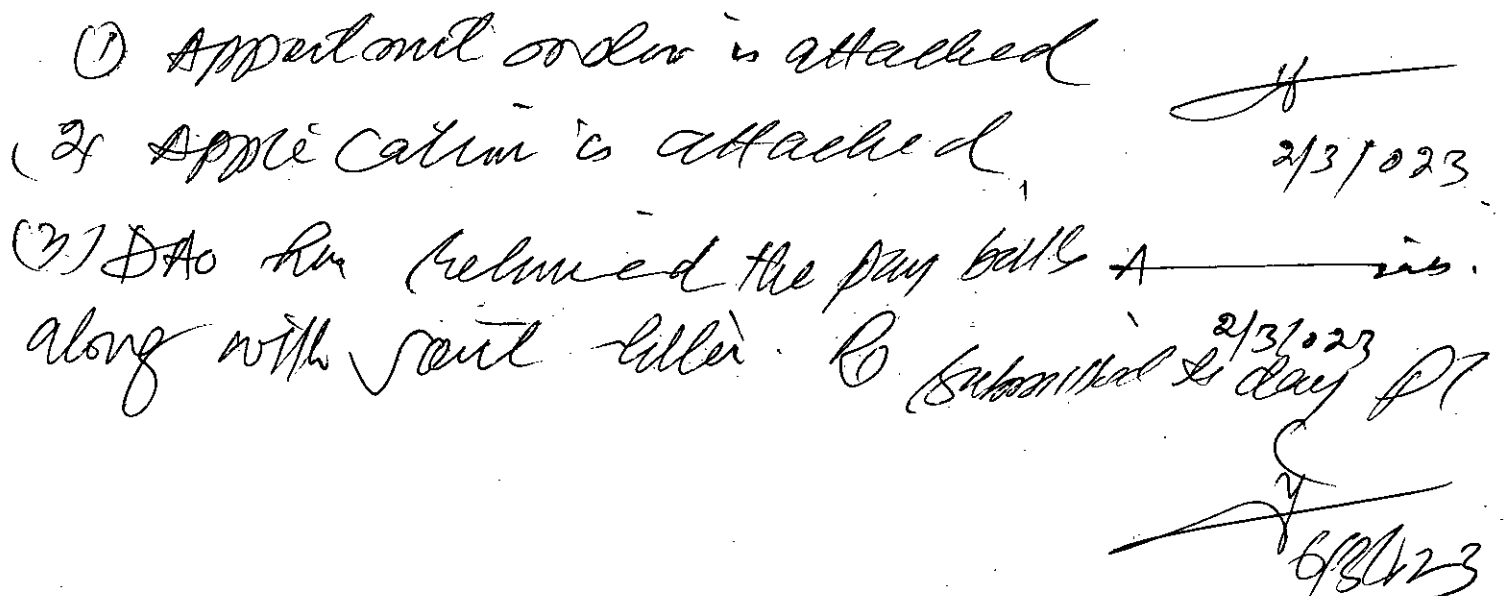 ① Appointment order is attached
2/3/023
(2) Application is attached
(3) DAO has returned the pay bills A
2/3/023
along with letter. Re submitted to day Pl
6/3/023